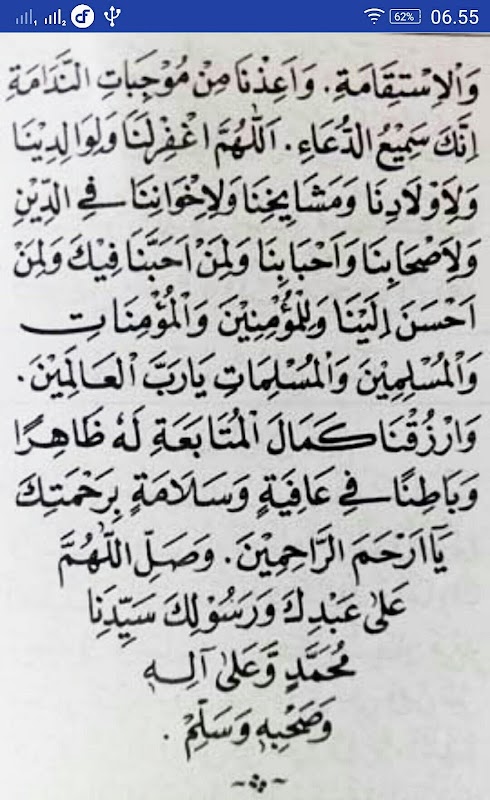 62% 06.55
وَالْاِسْتِقَامَةِ. وَاَعِذْنَا مِنْ مُوْجِبَاتِ النَّدَامَةِ
اِنَّكَ سَمِيْعُ الدُّعَاءِ. اَللّٰهُمَّ اغْفِرْلَنَا وَلِوَالِدِيْنَا
وَلِاَوْلَادِنَا وَمَشَايِخِنَا وَلِاِخْوَانِنَا فِي الدِّيْنِ
وَلِاَصْحَابِنَا وَاَحْبَابِنَا وَلِمَنْ اَحَبَّنَا فِيْكَ وَلِمَنْ
اَحْسَنَ اِلَيْنَا وَلِلْمُؤْمِنِيْنَ وَالْمُؤْمِنَاتِ
وَالْمُسْلِمِيْنَ وَالْمُسْلِمَاتِ يَارَبَّ الْعَالَمِيْنَ.
وَارْزُقْنَا كَمَالَ الْمُتَابَعَةِ لَهُ ظَاهِرًا
وَبَاطِنًا فِي عَافِيَةٍ وَسَلَامَةٍ بِرَحْمَتِكَ
يَآاَرْحَمَ الرَّاحِمِيْنَ. وَصَلِّ اللّٰهُمَّ
عَلٰى عَبْدِكَ وَرَسُوْلِكَ سَيِّدِنَا
مُحَمَّدٍ وَّعَلٰى آلِهِ
وَصَحْبِهِ وَسَلِّمْ.